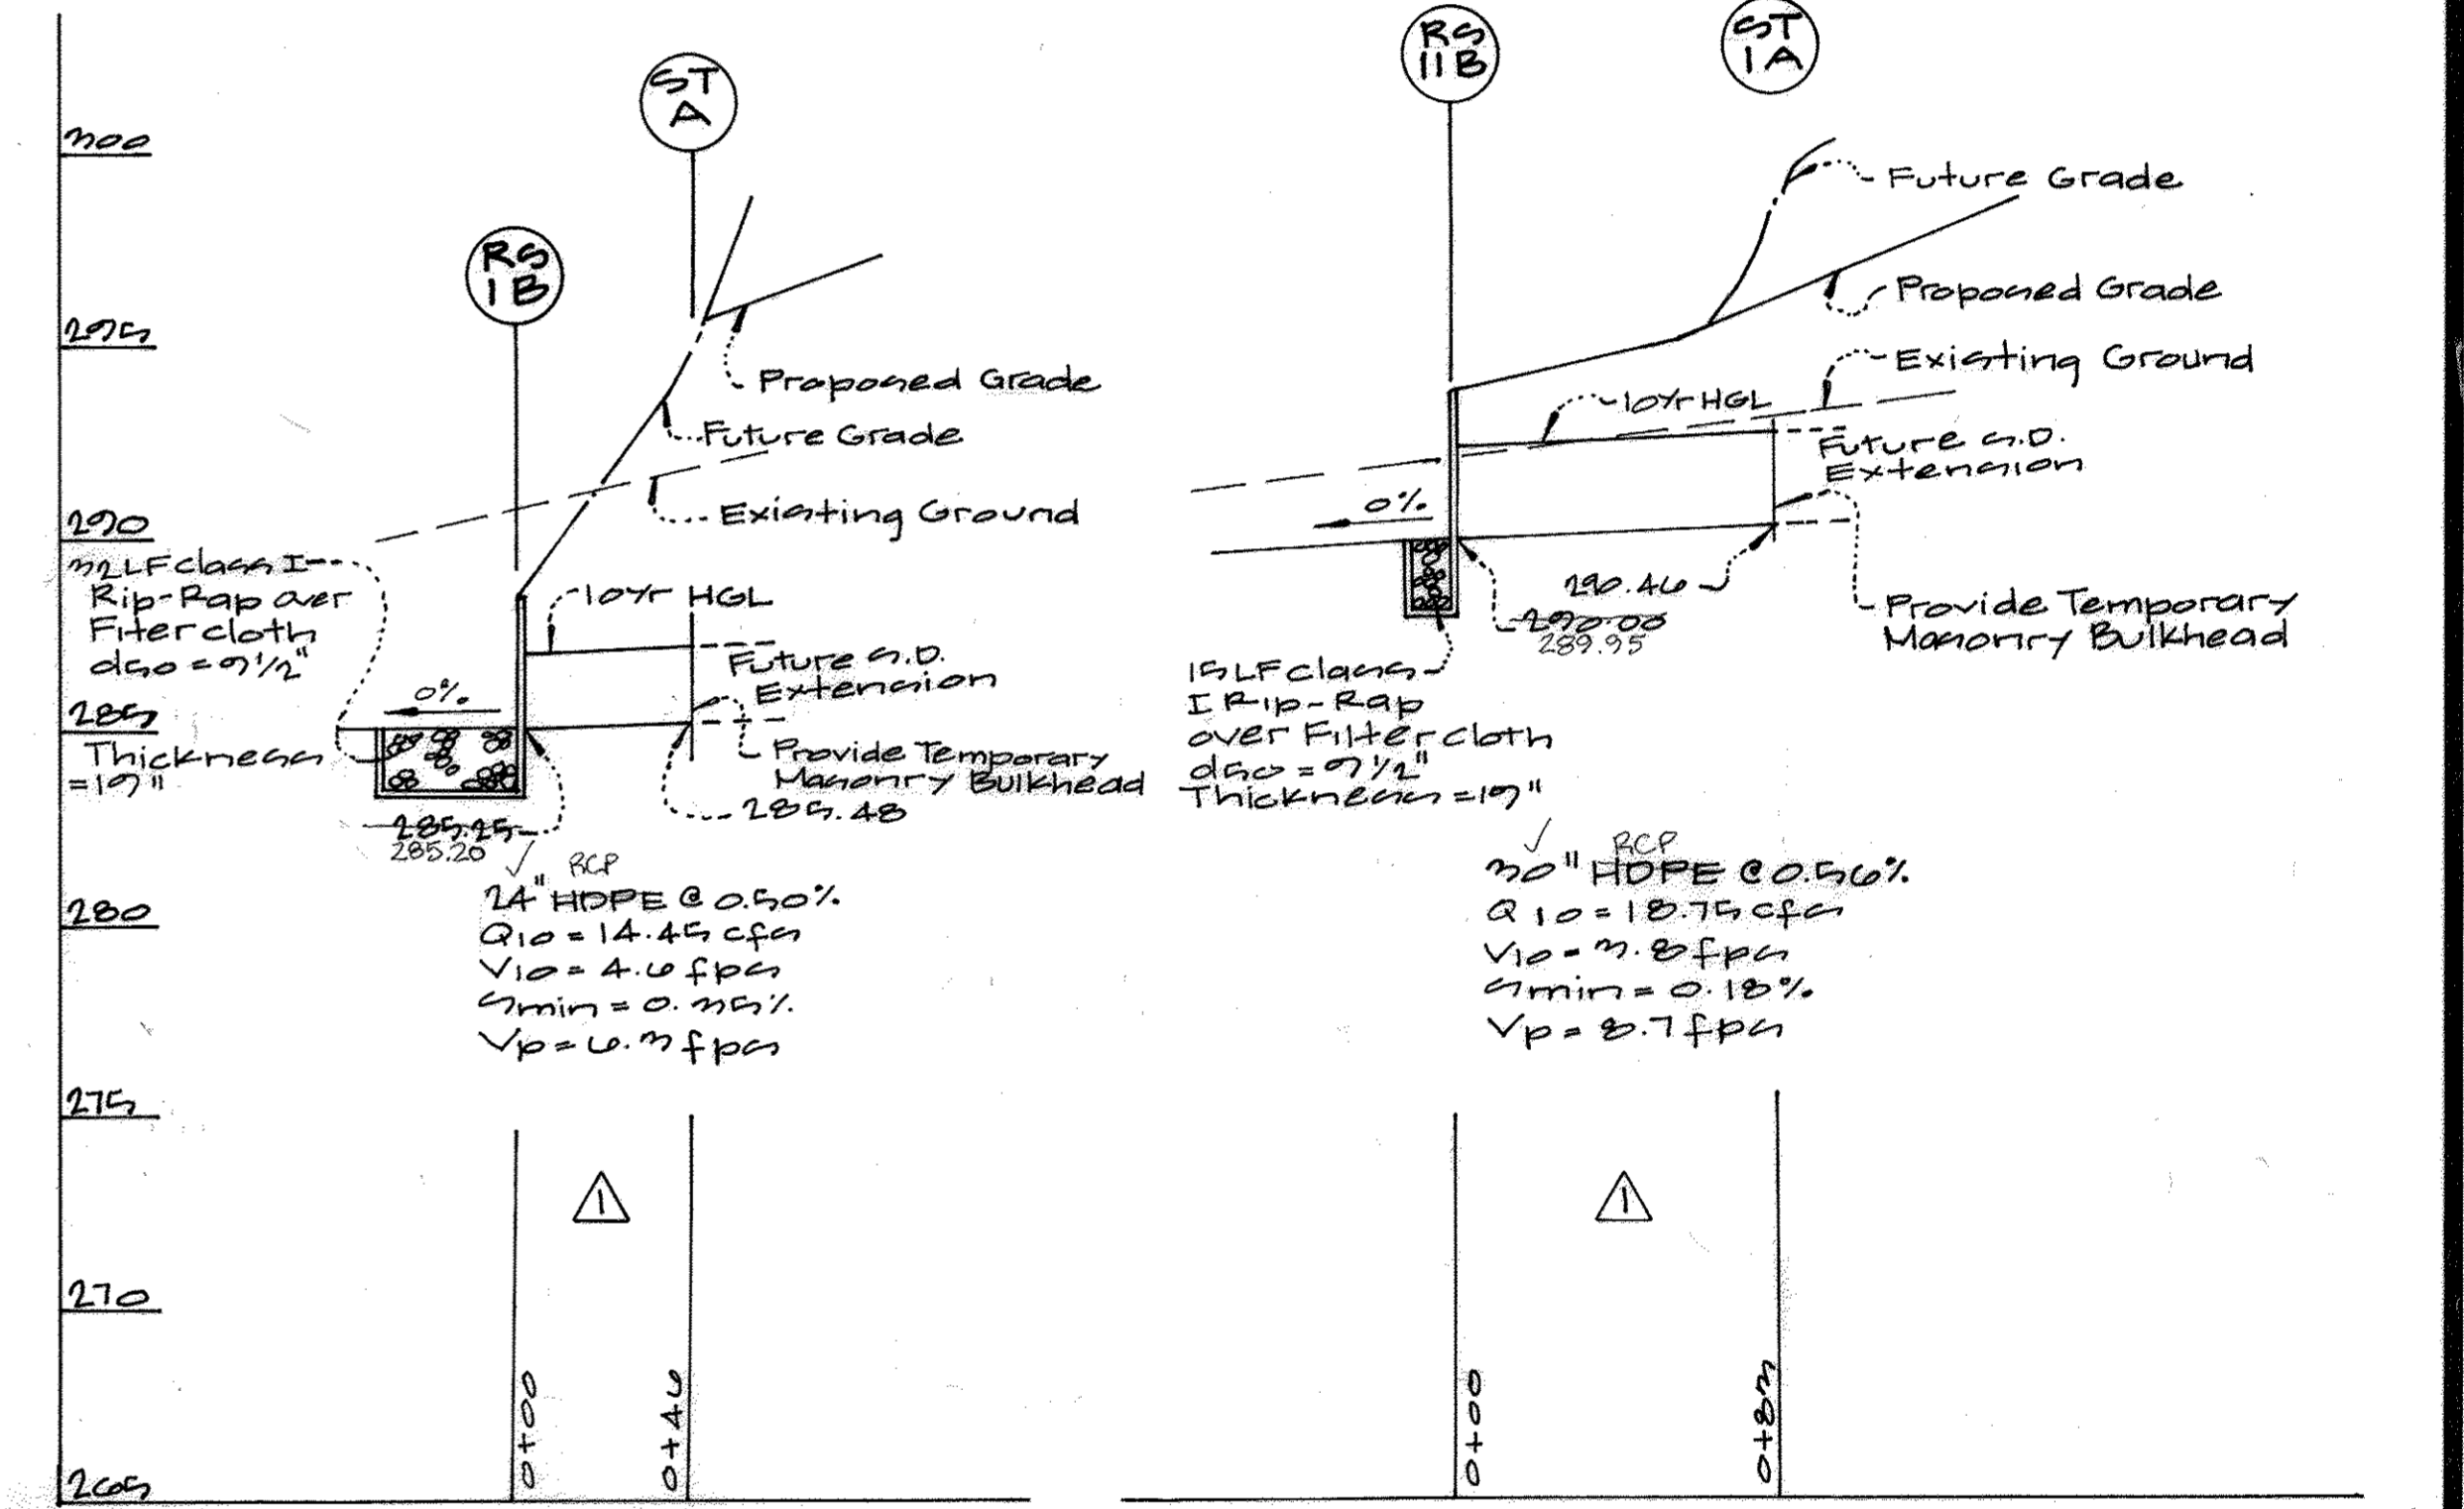 300
295
290
285
280
275
270
265
ST
A
RS
1B
Proposed Grade
Future Grade
Existing Ground
32 LF class I
Rip-Rap over
Filter cloth
d50 = 9 1/2"
Thickness
=19"
0%
10Yr HGL
Future S.D.
Extension
Provide Temporary
Masonry Bulkhead
285.48
285.25
285.20
RCP
24" HDPE @ 0.50%
Q10 = 14.45 cfs
V10 = 4.6 fps
Smin = 0.35%
Vp = 6.3 fps
1
0+00
0+46
RS
11B
ST
1A
Future Grade
Proposed Grade
Existing Ground
10Yr HGL
Future S.D.
Extension
0%
290.46
290.00
289.95
Provide Temporary
Masonry Bulkhead
15 LF class
I Rip-Rap
over Filter cloth
d50 = 9 1/2"
Thickness =19"
RCP
30" HDPE @ 0.56%
Q10 = 18.75 cfs
V10 = 3.8 fps
Smin = 0.18%
Vp = 8.7 fps
1
0+00
0+83